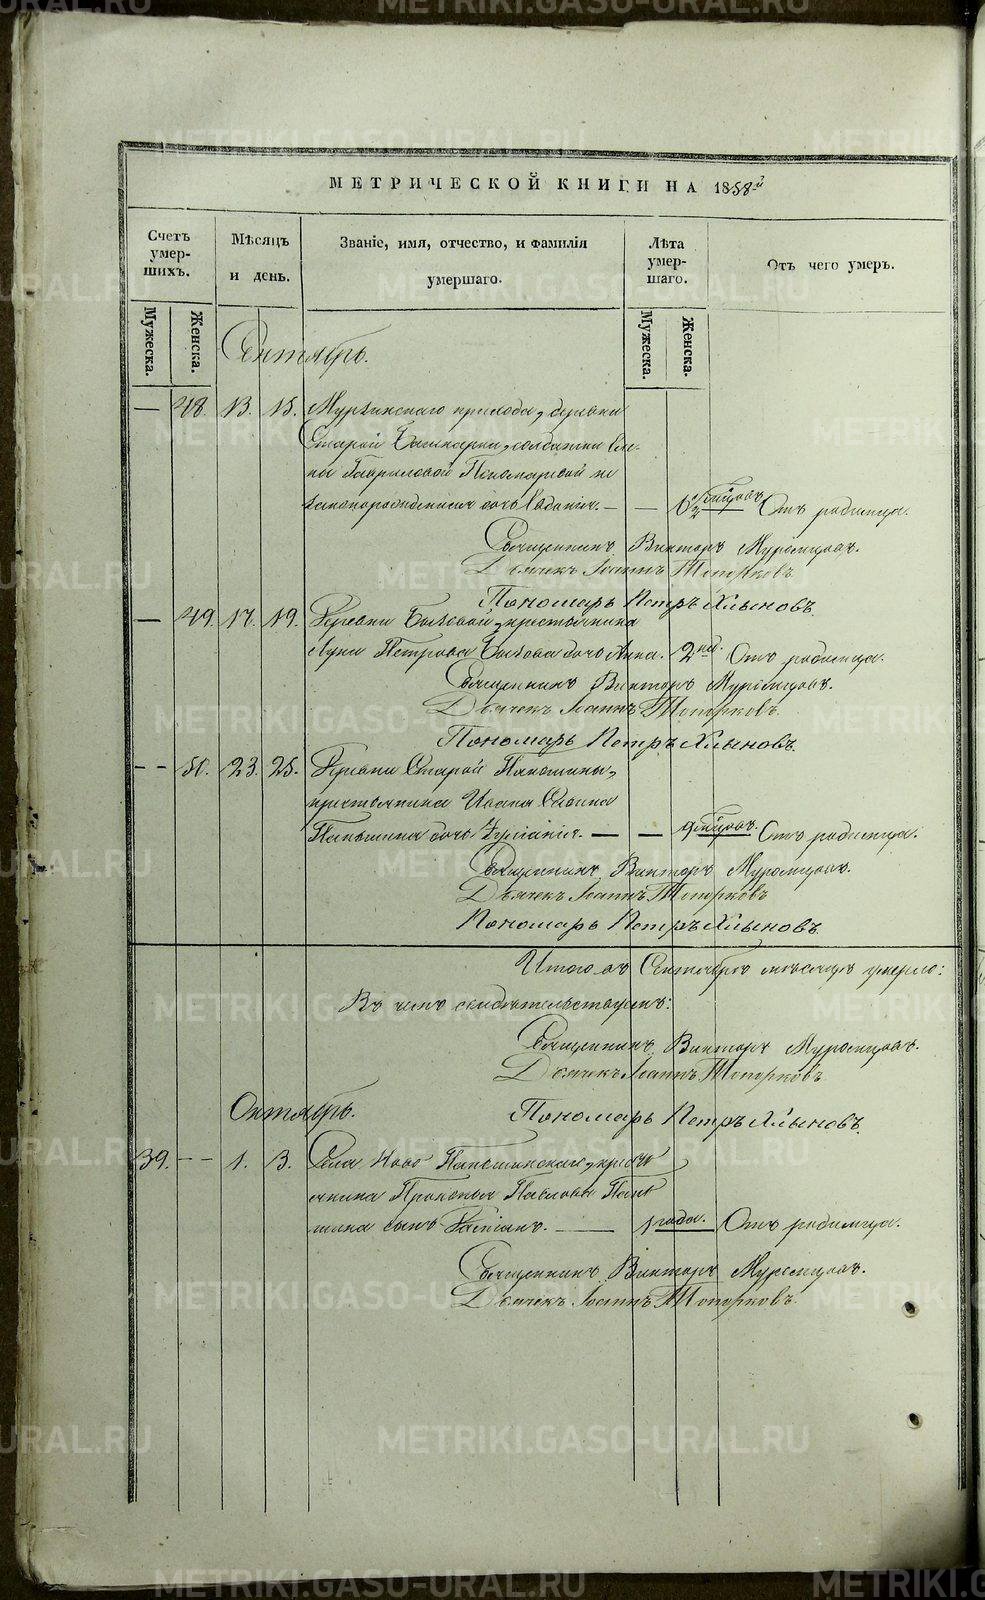 МЕТРИЧЕСКОЙ КНИГИ НА 1858й
Счетъ умер-шихъ.
Мѣсяцъ и день.
Званіе, имя, отчество, и фамилія умершаго.
Лѣта умер-шаго.
Отъ чего умеръ.
Мужеска. Женска. Мужеска. Женска.
Сентябрь.
— 48. 13. 15. Мурзинскаго прихода, деревни
Старой Башкарки, солдатки
Гавриловой Пономаревой не
законорожденная дочь Евдокія. — — мѣсяцовъ Отъ родимца.
Священникъ Викторъ Муромцовъ.
Дьячекъ Іоаннъ Топорковъ.
Пономарь Петръ Хлыновъ
— 49. 17. 19. Деревни Быковой, крестьянина
Луки Петрова Быкова дочь Анна. 2 нед. Отъ родимца.
Священникъ Викторъ Муромцовъ.
Дьячекъ Іоаннъ Топорковъ.
Пономарь Петръ Хлыновъ.
— 50. 23. 25. Деревни Старой Паньшины,
крестьянина Ивана Савина
Паньшина дочь — — мѣсяцовъ. Отъ родимца.
Священникъ Викторъ Муромцовъ.
Дьячекъ Іоаннъ Топорковъ
Пономарь Петръ Хлыновъ.
Итого въ Сентябрѣ мѣсяцѣ умерло:
Въ чемъ свидѣтельствуемъ:
Священникъ Викторъ Муромцовъ.
Дьячекъ Іоаннъ Топорковъ
Октябрь. Пономарь Петръ Хлыновъ.
39. — 1. 3. Села Ново Паньшинскаго, кресть
янина Прокопья Павлова Пань
шина сынъ — 1 года. Отъ родимца.
Священникъ Викторъ Муромцовъ.
Дьячекъ Іоаннъ Топорковъ.
METRIKI.GASO-URAL.RU